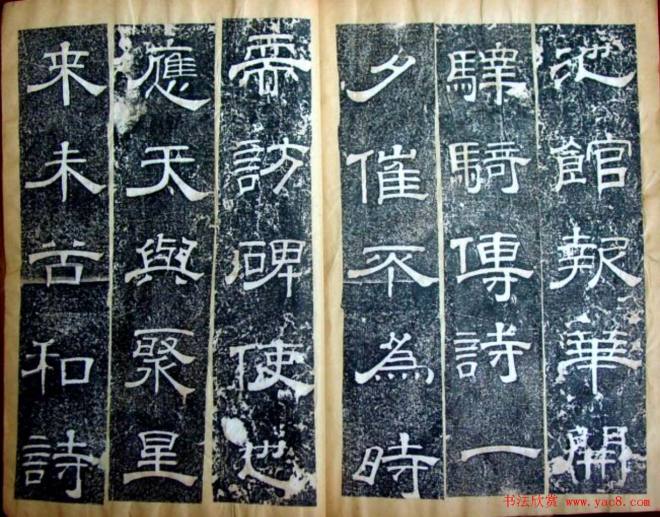 池館報華開
驛騎傳詩一
夕催不為時
帝訪碑使也
應天與聚星
来未古和詩
书法欣赏 www.yac8.com